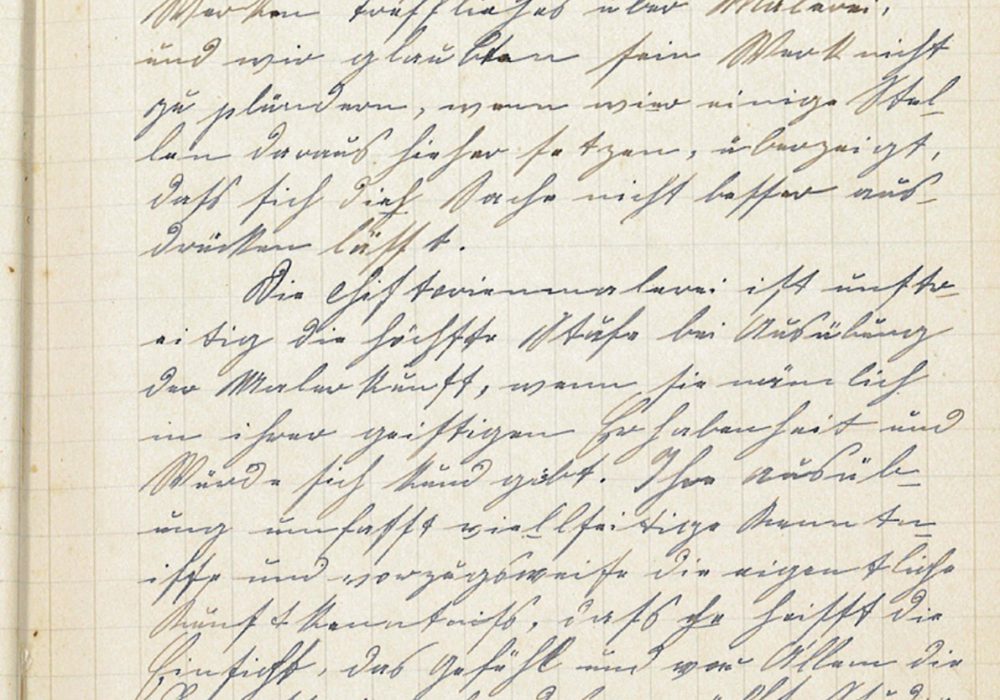 Werken treffliches über Malerei,
und wir glaubten sein Werk nicht
zu plündern, wenn wier einige Stel-
len daraus hieher setzen, überzeigt,
dass sich dieß Sache nicht besser aus-
drücken lässt.
Die Historienmalerei ist unstr-
eitig die höchste Stufe bei Ausübung
der Malerkunst, wenn sie nämlich
in ihrer geistigen Erhabenheit und
Würde sich kund gibt. Ihre ausüb-
ung umfasst viellseitige Kenntn-
isse und vorzugsweise die eigentliche
Kunstkenntniss, dass heisst die
Einsicht, das Gefühl und vor Allem die